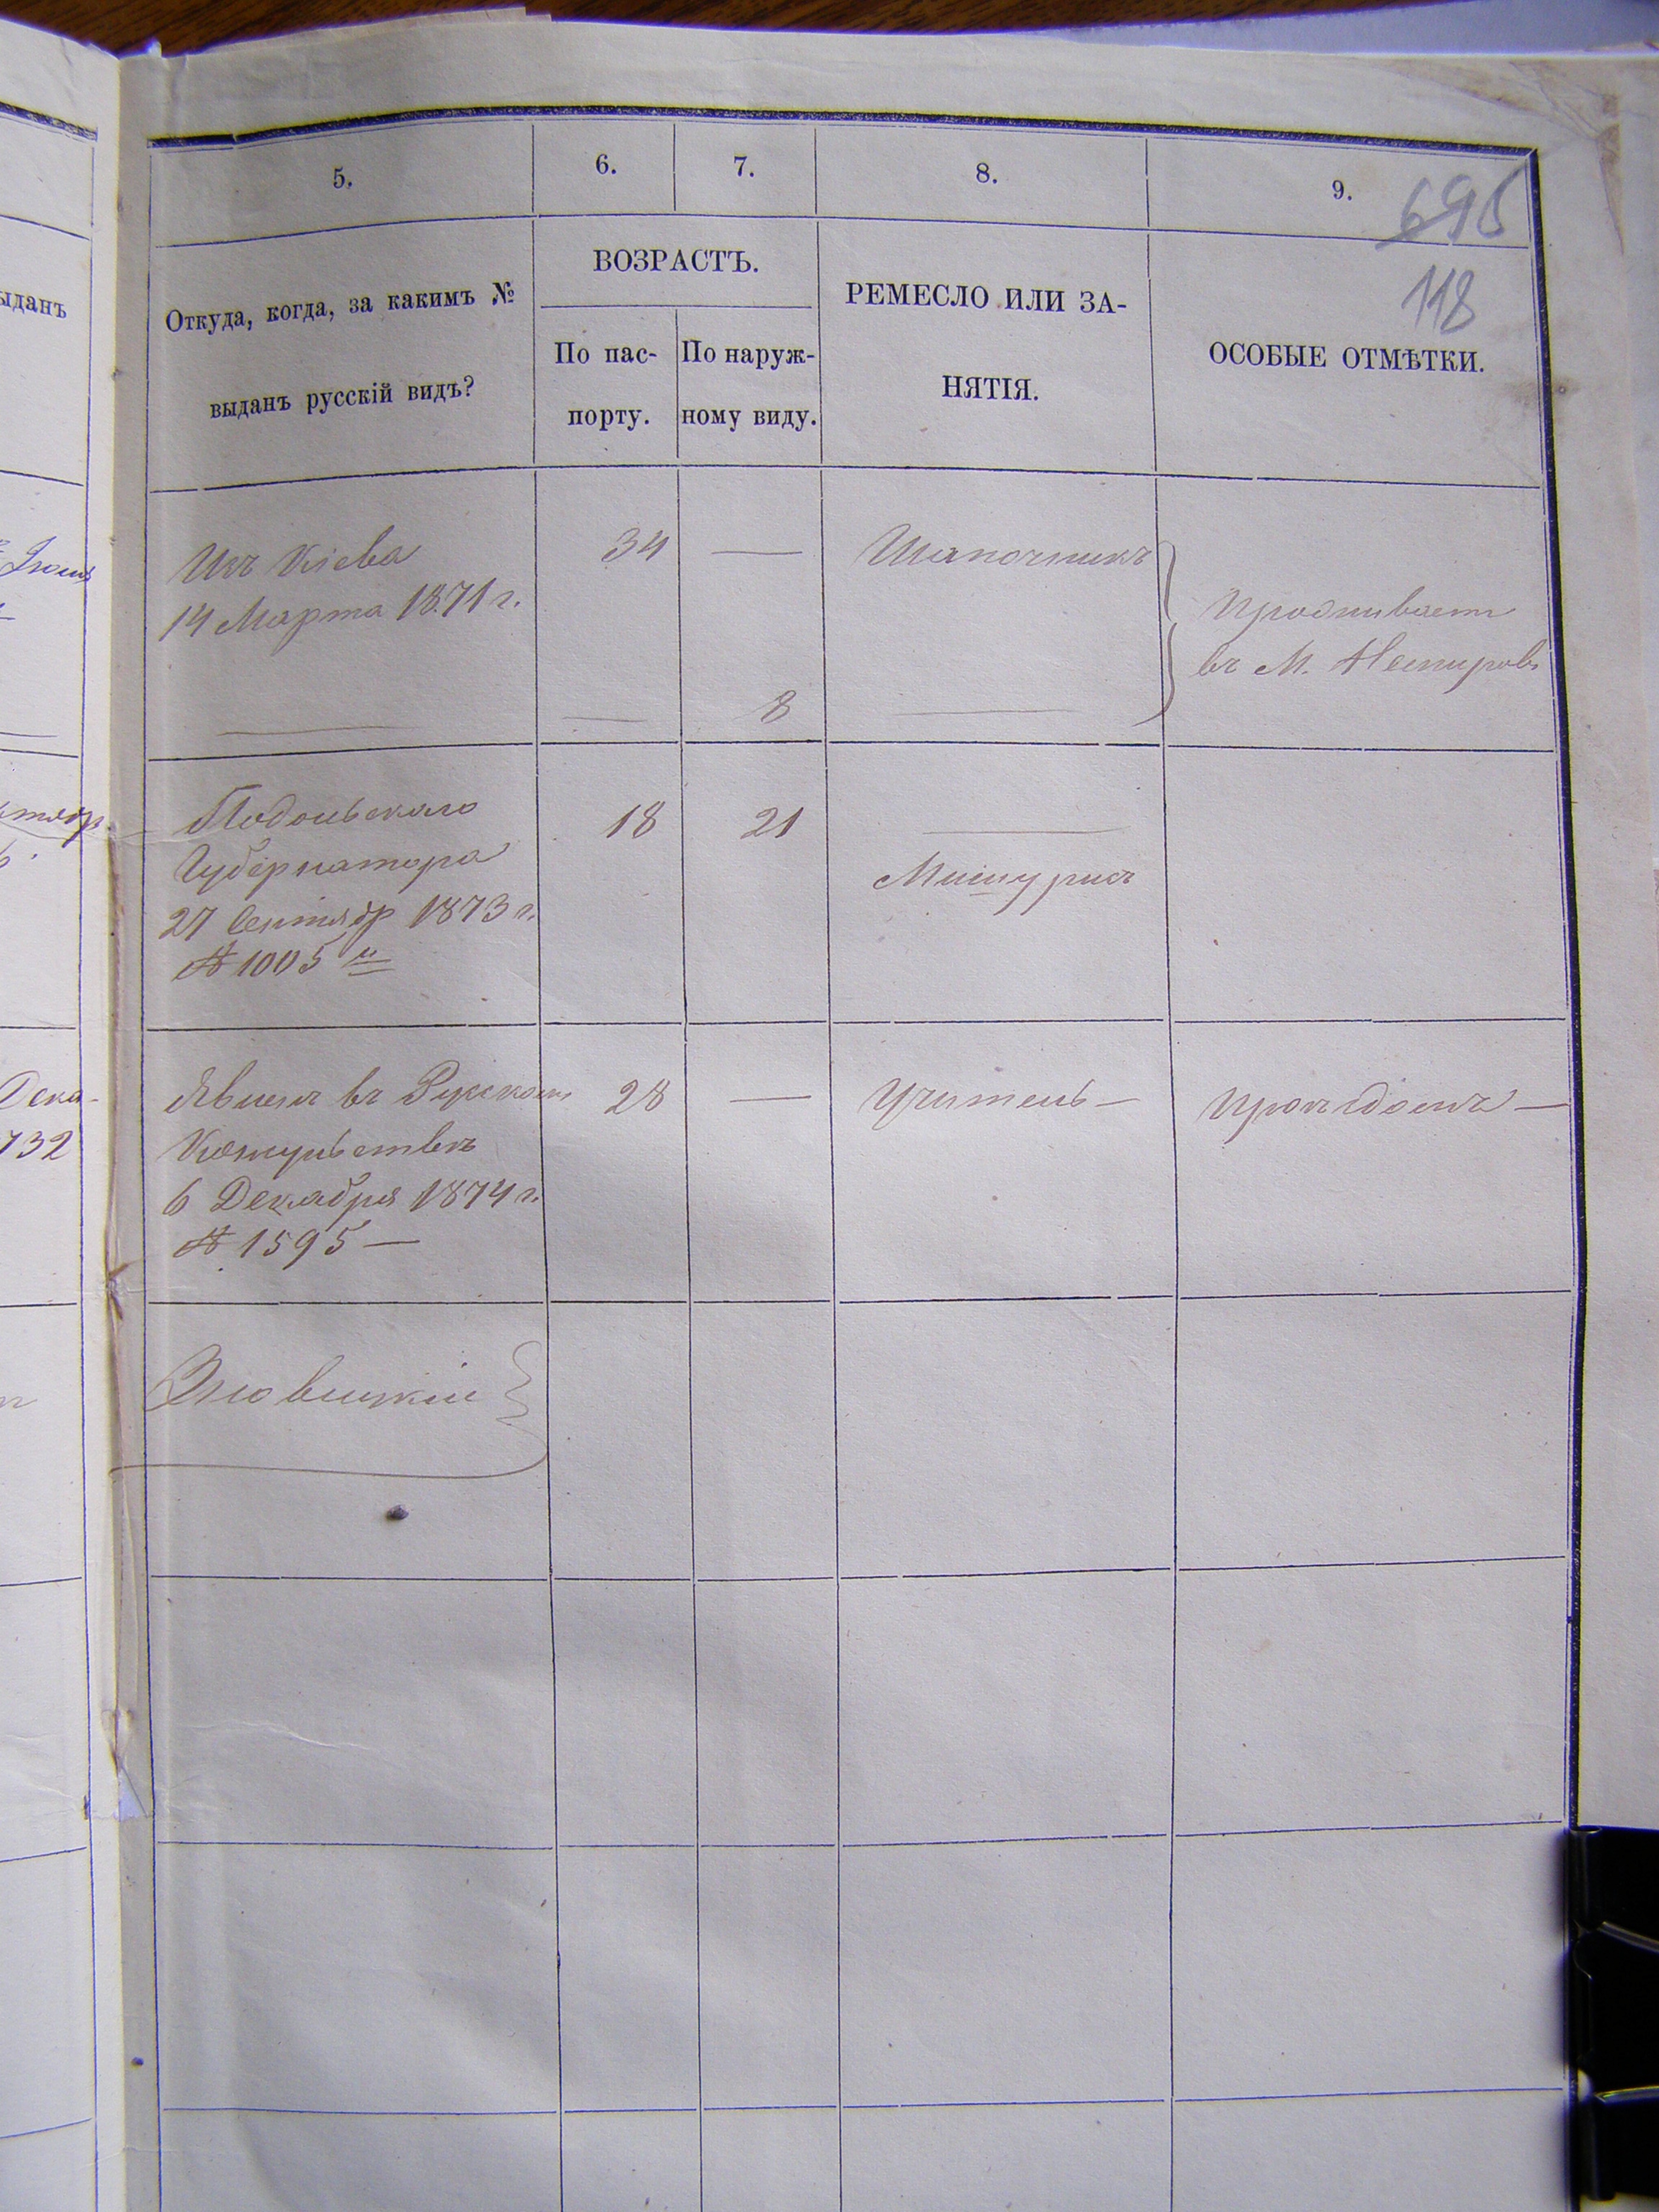 5.
6.
7.
8.
9.
695
118
Откуда, когда, за какимъ №
выданъ русскій видъ?
ВОЗРАСТЪ.
По пас-
порту.
По наруж-
ному виду.
РЕМЕСЛО ИЛИ ЗА-
НЯТІЯ.
ОСОБЫЕ ОТМѢТКИ.
Изъ Кіева
14 Марта 1871 г.
34
—
Шапочникъ
8
Проживаетъ
въ М. Немировѣ
Подольскаго
Губернатора
27 Сентябр 1873 г.
№ 1005
18
21
Мишурисъ
Явленъ въ Русскомъ
Консульствѣ
6 Декабря 1874 г.
№ 1595 —
28
—
Учитель —
ыданъ
Дека-
732